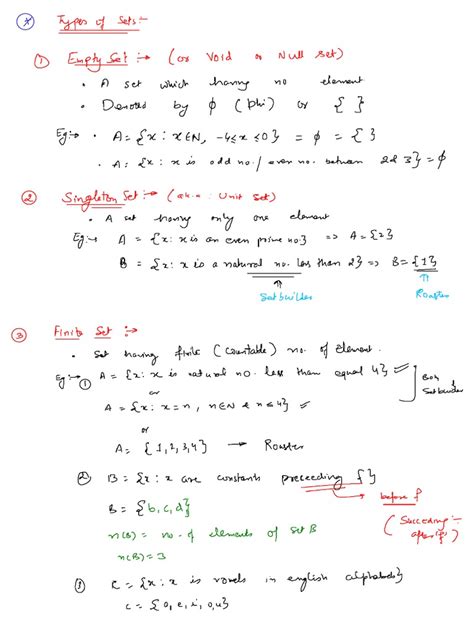 Types of Sets :-
① Empty Set :→ (or Void or Null set)
• A set which having no element
• Denoted by ϕ (phi) or { }
Eg:→ • A = {x : x∈N, -4≤x≤0} = ϕ = { }
• A = {x : x is odd no./even no. between 2&3} = ϕ
② Singleton Set :→ (a.k.a : Unit Set)
• A set having only one element
Eg:→ A = {x : x is an even prime no.} => A = {2}
B = {x : x is a natural no. less than 2} => B = {1}
⇑ ⇑
Setbuilder Roaster
③ Finite Set :→
• Set having finite (countable) no. of Element.
Eg:→ ① A = {x : x is natural no. less than equal 4}
or
A = {x : x=n, n∈N & n≤4}
Both Setbuilder
or
A = {1,2,3,4} → Roaster
② B = {x : x are constants preceeding f}
before f
B = {b,c,d}
(Succeding :- after f)
n(B) = no. of elements of set B
n(B) = 3
③ C = {x : x is vowels in english alphabets}
C = {a,e,i,o,u}